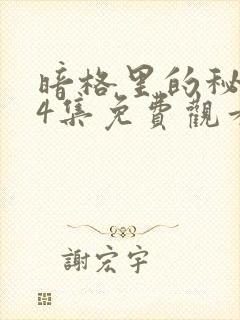 暗格里的秘
4集免費觀
謝宏宇